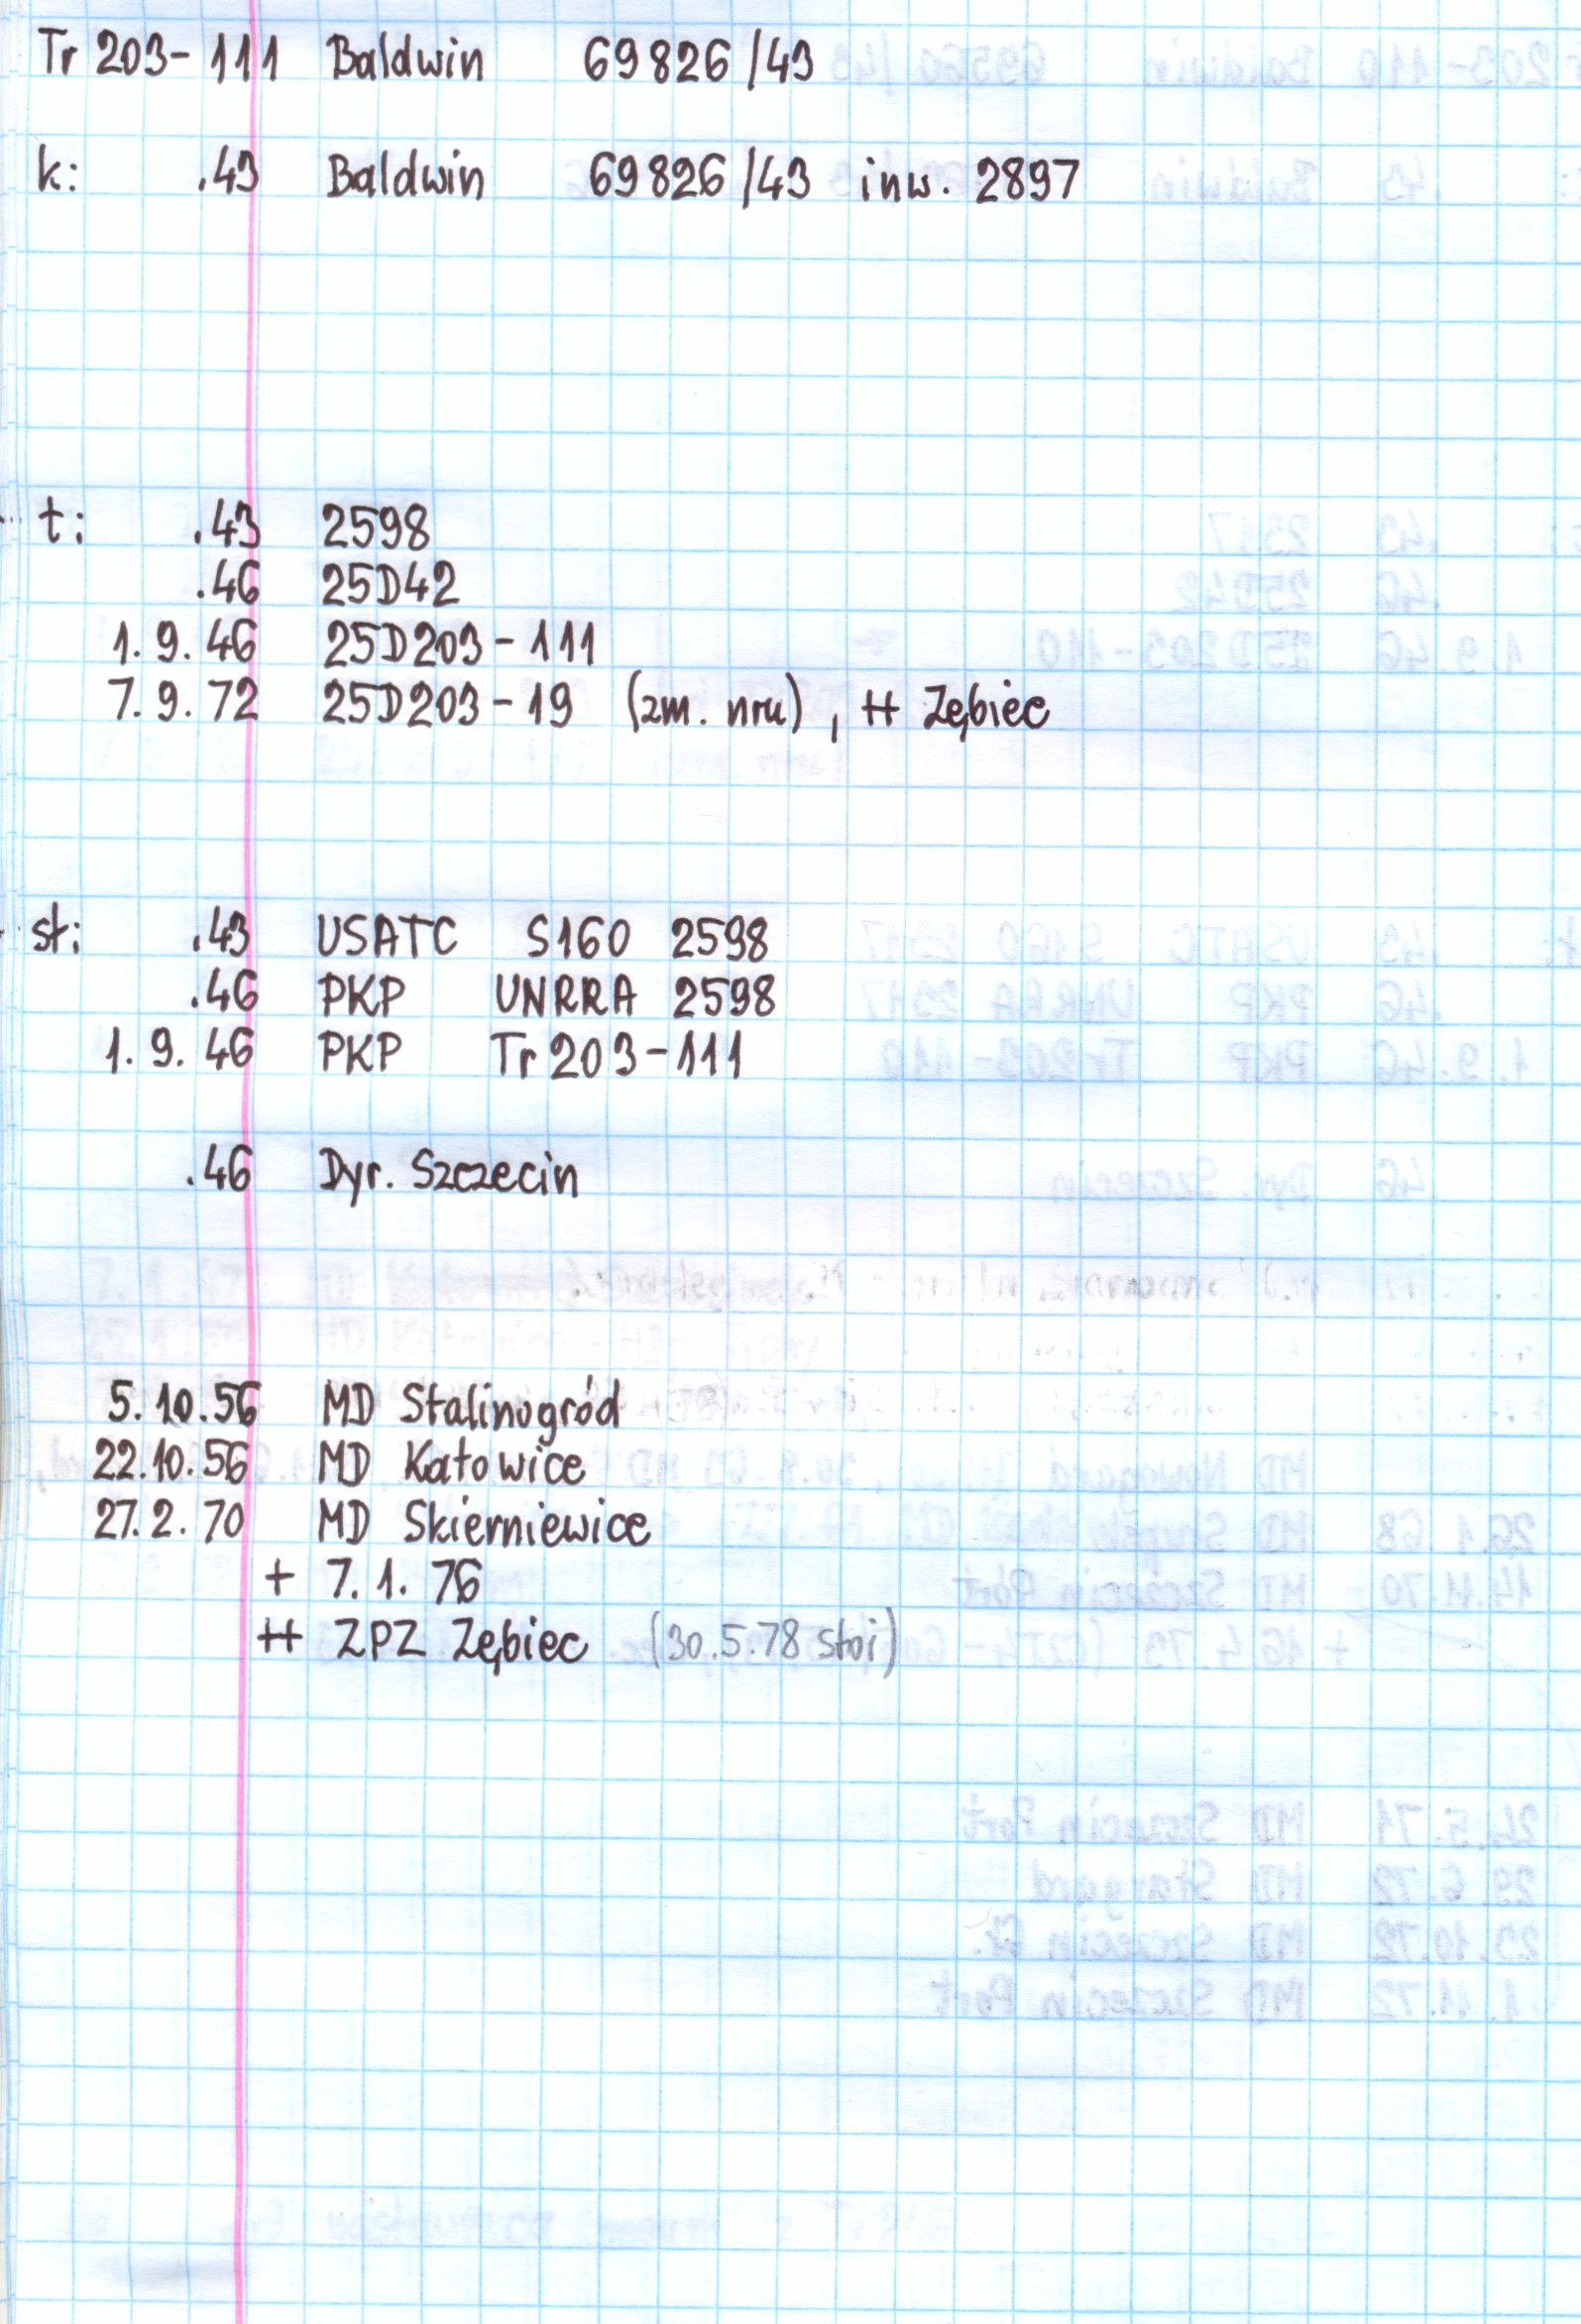 Tr 203-111 Baldwin 69826/43
k: .43 Baldwin 69826/43 inw. 2897
t: .43 2598
.46 25D42
1.9.46 25D203-111
7.9.72 25D203-19 (zm. nru), ++ Zębiec
st: .43 USATC S160 2598
.46 PKP UNRRA 2598
1.9.46 PKP Tr203-111
.46 Dyr. Szczecin
5.10.56 MD Stalinogród
22.10.56 MD Katowice
27.2.70 MD Skierniewice
+ 7.1.76
++ ZPZ Zębiec (30.5.78 stoi)